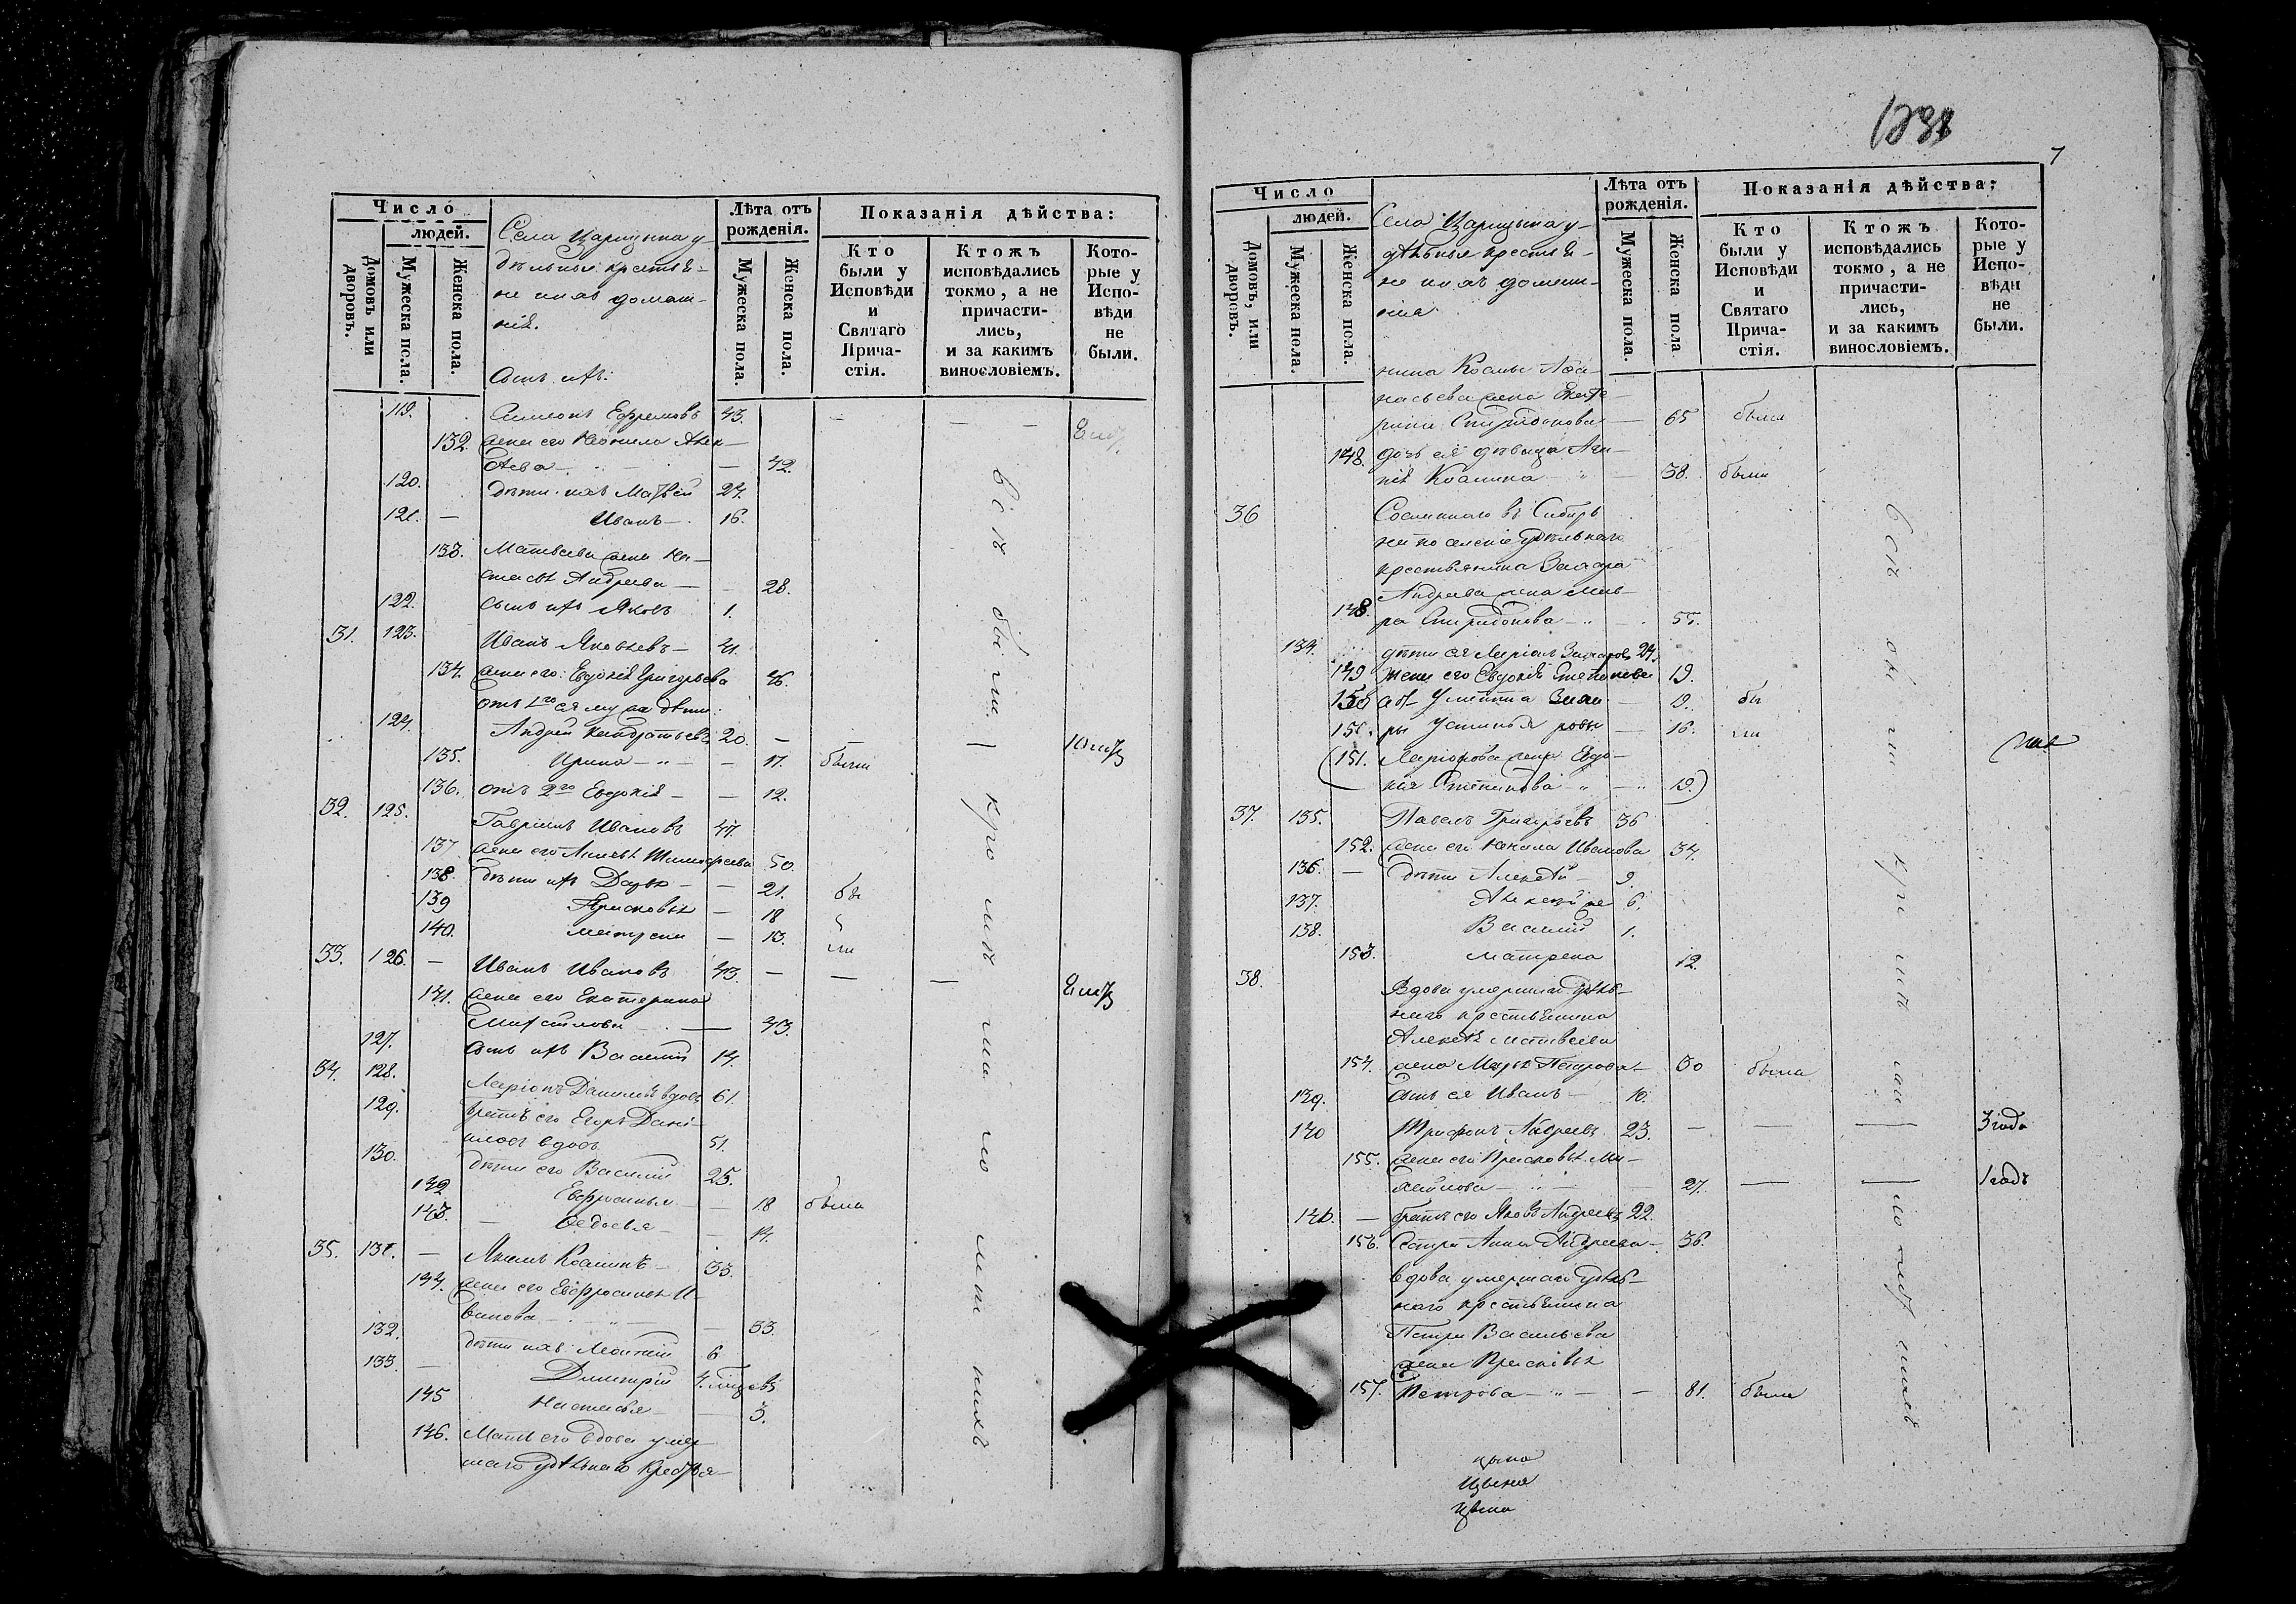 Число
людей.
Домовъ или дворовъ.
Мужеска пола.
Женска пола.
Села Царицына у-
дѣльныя крестья-
не и ихъ домаш-
нія.
Лѣта отъ рожденія.
Мужеска пола.
Женска пола.
Показанія дѣйства:
Кто были у Исповѣди и Святаго Причастія.
Ктожъ исповѣдались токмо, а не причастились, и за какимъ винословіемъ.
Которые у Исповѣди не были.
Сынъ ихъ:
119. Симеонъ Ефремовъ 43. — — —
132. жена его Неонила Алек-
сѣева — — 42.
120. дѣти ихъ Матвей 24.
121. — Иванъ — 16.
133. Матвеева жена На-
стасья Андреева — 28.
122. сынъ ихъ Яковъ 1.
31. 123. Иванъ Яковлевъ — 41.
134. жена его Евдокія Григорьева 46.
отъ 1го ея мужа дѣти:
124. Андрей Кондратьевъ 20. — — —
135. Ирина — — 17. были
136. отъ 2го Евдокія — — 12.
32. 125. Гавріилъ Ивановъ 47.
137 жена его Анисья Тимофеева 50.
138. дѣти ихъ Дарья — — 21. бы
139 Прасковья — 18
140. Матрена — 13. ли
33. 126. — Иванъ Ивановъ 43. — — —
141. жена его Екатерина
Михайлова — 43.
127. сынъ ихъ Василій 14.
34. 128. Ларіонъ Даниловъ вдовъ 61.
129. братъ его Егоръ Дани-
ловъ вдовъ 51.
130. дѣти его Василій 25.
142 Евфросинья — 18 была
143. — Федосья — 14.
35. 131. — Якимъ Косминъ — 33.
144. жена его Евфросинья И-
ванова — — 33.
132. дѣти ихъ: 6
133. — Димитрій
145 Настасья — 3.
146. Мать его вдова умер-
шаго удѣльнаго крестья-
всѣ были кромѣ малолѣтнихъ
7
Число
людей.
Домовъ, или дворовъ.
Мужеска пола.
Женска пола.
Села Царицына у-
дѣльныя крестья-
не и ихъ домаш-
нія
Лѣта отъ рожденія.
Мужеска пола.
Женска пола
Показанія дѣйства:
Кто были у Исповѣди и Святаго Причастія.
Ктожъ исповѣдались токмо, а не причастились, и за какимъ винословіемъ.
Которые у Исповѣди не были.
нина Космы Афа-
насьева жена Екате-
рина Спиридонова — 65 была
148. дочь ея дѣвица
Космина — — 38. была
36 Сосланнаго въ Сибирь
на поселеніе удѣльнаго
крестьянина Захара
Андреева жена Мав-
148. ра Спиридонова — — 55.
134. дѣти ея Ларіонъ Захаровъ 24.
149 жена его Евдокія Степанова 19.
150 Улитта — 19. бы
150. Устинья — 16. ли
(151. Ларіонова жена Евдо-
кія Степанова — — 19.)
37. 135. Павелъ Григорьевъ 36
152. жена его Неонила Иванова 34.
136. — дѣти Алексѣй — 9.
137. Алексѣй же 6.
138. Василій 1.
153. Матрена 12.
38. Вдова умершаго удѣль-
наго крестьянина
Алексѣя Матвеева
154. жена Марья Петрова — 50 была
139. сынъ ея Иванъ — 10.
140 Трифонъ Андреевъ 23. — — — 3 года
155. жена его Прасковья Ми-
хайлова — — 27. — — 1 годъ
146. — братъ его Яковъ Андреевъ 22.
156. Сестра Анна Андреева — 36.
вдова умершаго удѣль-
наго крестьянина
Петра Васильева
жена Прасковья
157. Петрова — — — 81. была
всѣ были кромѣ малолѣтнихъ